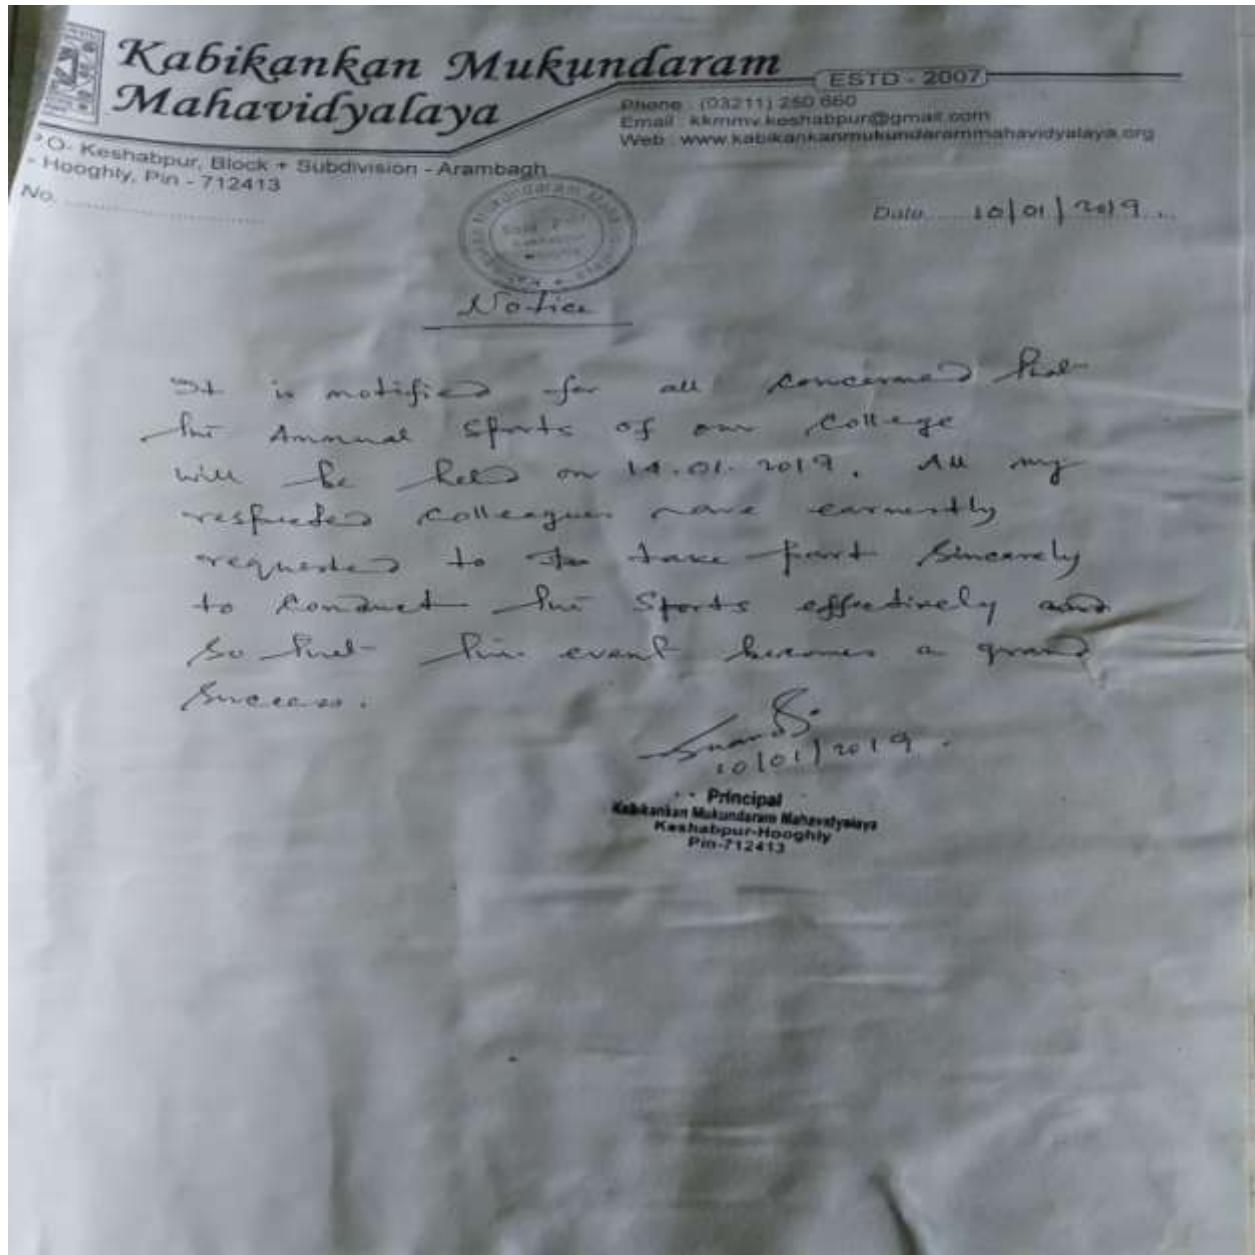 Kabikankan Mukundaram
Mahavidyalaya
ESTD - 2007
Phone : (03211) 250 660
Email : kkmmv.keshabpur@gmail.com
Web : www.kabikankanmukundarammahavidyalaya.org
P O- Keshabpur, Block + Subdivision - Arambagh
- Hooghly, Pin - 712413
No. ............................
Date ..... 10/01/2019 ....
Notice
It is notified for all concerned that
the Annual Sports of our College
will be held on 14.01.2019. All my
respected colleagues are earnestly
requested to take part sincerely
to conduct the Sports effectively and
so that this event becomes a grand
success.
10/01/2019.
Principal
Kabikankan Mukundaram Mahavidyalaya
Keshabpur-Hooghly
Pin-712413